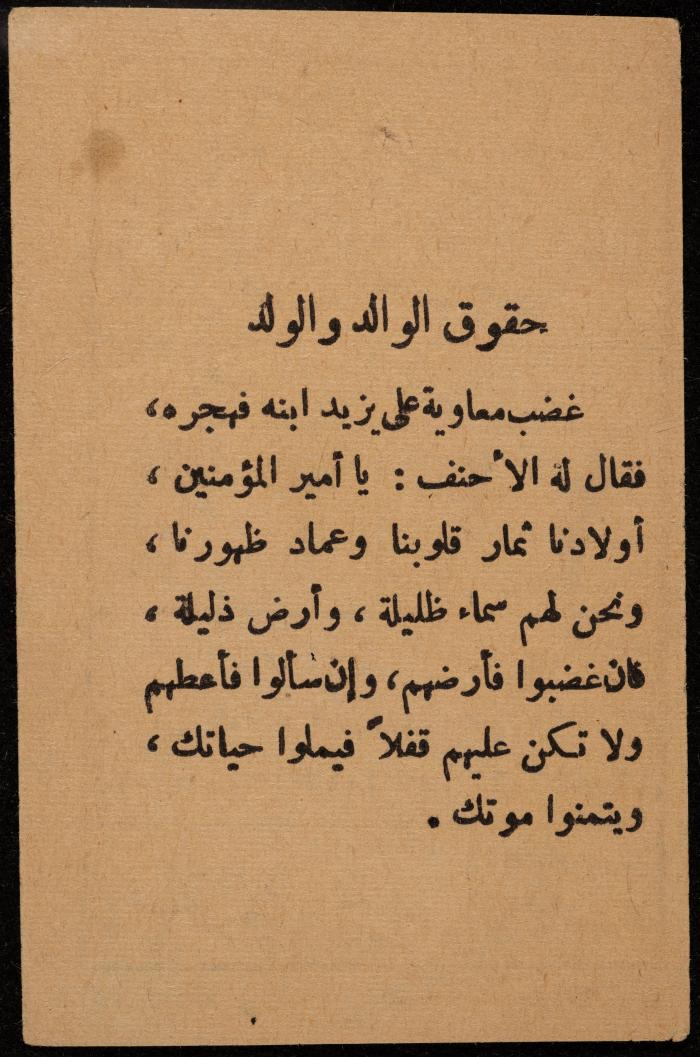 حقوق الوالد والولد
غضب معاوية على يزيد ابنه فهجره،
فقال له الأحنف : يا أمير المؤمنين ،
أولادنا ثمار قلوبنا وعماد ظهورنا ،
ونحن لهم سماء ظليلة ، وأرض ذليلة ،
فان غضبوا فأرضهم، وإن سألوا فأعطهم
ولا تكن عليهم قفلاً فيملوا حياتك ،
ويتمنوا موتك .